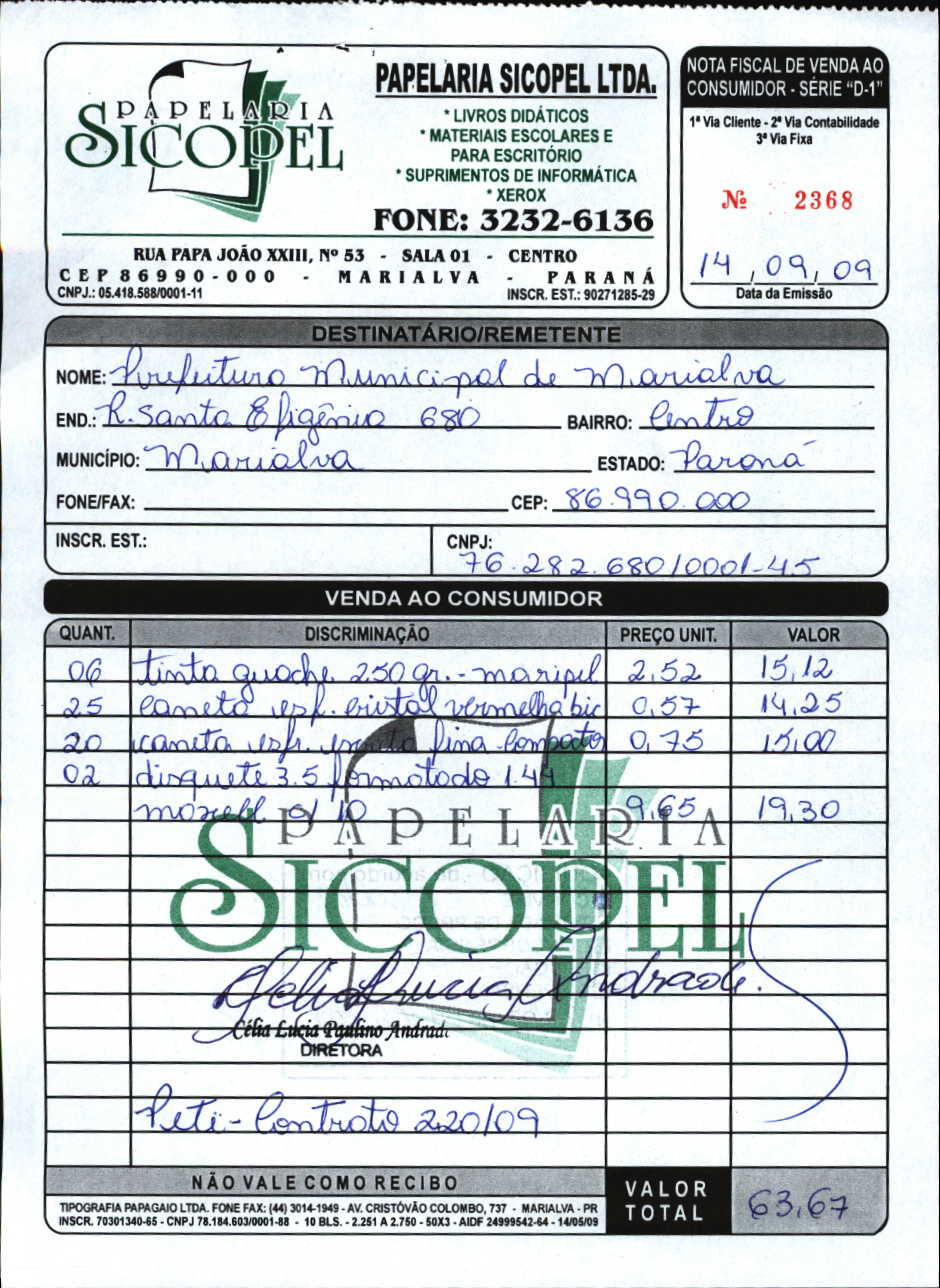 PAPELARIA
SICOPEL
PAPELARIA SICOPEL LTDA.
* LIVROS DIDÁTICOS
* MATERIAIS ESCOLARES E
PARA ESCRITÓRIO
* SUPRIMENTOS DE INFORMÁTICA
* XEROX
FONE: 3232-6136
RUA PAPA JOÃO XXIII, Nº 53 - SALA 01 - CENTRO
CEP 86990-000 - MARIALVA - PARANÁ
CNPJ.: 05.418.588/0001-11 INSCR. EST.: 90271285-29
NOTA FISCAL DE VENDA AO
CONSUMIDOR - SÉRIE "D-1"
1ª Via Cliente - 2ª Via Contabilidade
3ª Via Fixa
Nº 2368
14, 09, 09
Data da Emissão
DESTINATÁRIO/REMETENTE
NOME: Prefeitura Municipal de Marialva
END.: R. Santa Efigênia 680 BAIRRO: Centro
MUNICÍPIO: Marialva ESTADO: Paraná
FONE/FAX: CEP: 86.990.000
INSCR. EST.: CNPJ: 76.282.680/0001-45
VENDA AO CONSUMIDOR
QUANT. DISCRIMINAÇÃO PREÇO UNIT. VALOR
06 tinta guache 250 gr. - maripel 2,52 15,12
25 caneta esf. cristal vermelha bic 0,57 14,25
20 caneta esfr. ponta fina Compactor 0,75 15,00
02 disquete 3.5 formatado 1.44
maxell c/ 10 9,65 19,30
PAPELARIA
SICOPEL
Célia Lucia Andrade.
Célia Lucia Paulino Andrade
DIRETORA
Peti - Contrato 220/09
NÃO VALE COMO RECIBO
VALOR TOTAL 63,67
TIPOGRAFIA PAPAGAIO LTDA. FONE FAX: (44) 3014-1949 - AV. CRISTÓVÃO COLOMBO, 737 - MARIALVA - PR
INSCR. 70301340-65 - CNPJ 78.184.603/0001-88 - 10 BLS. - 2.251 A 2.750 - 50X3 - AIDF 24999542-64 - 14/05/09